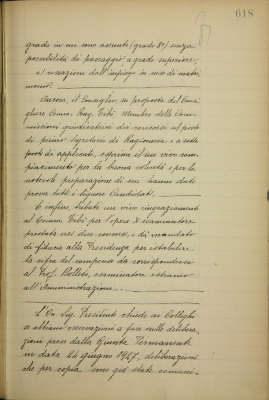 618
grado in cui sono assunti (grado 8°) senza
possibilità di passaggio a grado superiore;
e) cessazione dall'impiego in caso di matri
monio.
Ancora, il Consiglio, su proposta del Consi
gliere Comm. Rag. Tobi, membro delle Com
missioni giudicatrici dei concorsi al posto
di primo Segretario di Ragioneria e a sette
posti di applicato, esprime il suo vivo com
piacimento per la buona volontà e per la
notevole preparazione di cui hanno dato
prova tutti i Signori Candidati.
E infine, tributa un vivo ringraziamento
al Comm. Tobi per l'opera di esaminatore
prestata nei due concorsi, e dà mandato
di fiducia alla Presidenza per istabilire
la cifra del compenso da corrispondersi
al Prof. Polleto, esaminatore estraneo
all'Amministrazione.
L'On. Sig. Presidente chiede ai Colleghi
se abbiano osservazioni a fare sulle delibera
zioni prese dalla Giunta Permanente
in data 24 giugno 1927, deliberazioni
che per copia sono già state comuni-